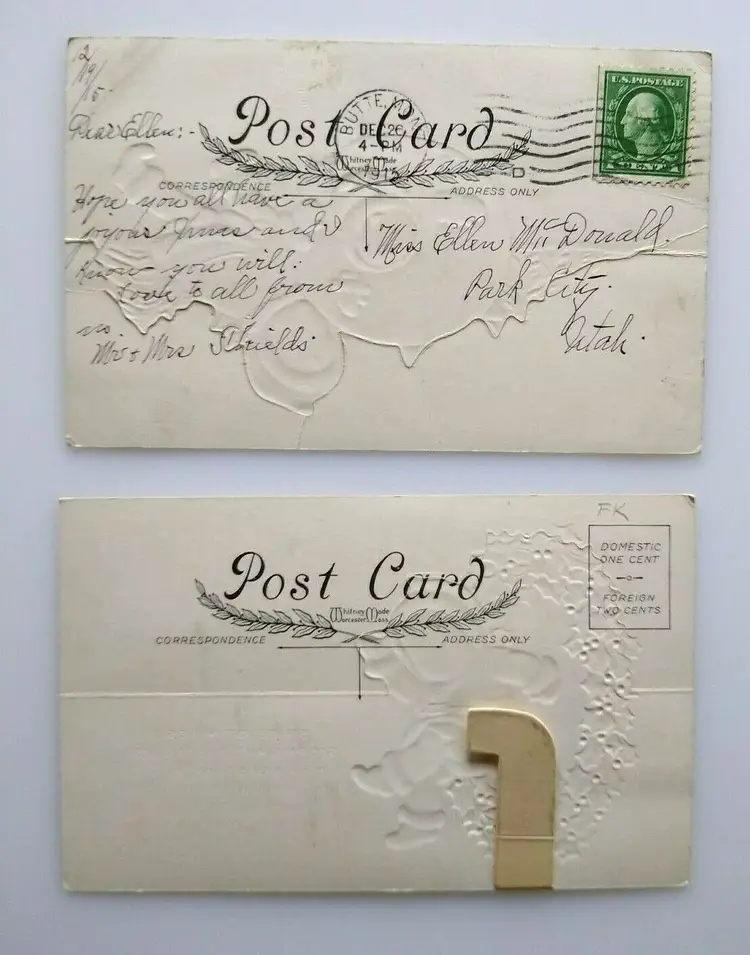 12/19/15.
Dear Ellen:-
Hope you all have a
joyous Xmas and I
know you will.
Love to all from
Mr + Mrs Shields.
Post Card
Whitney Made
Worcester, Mass
CORRESPONDENCE
ADDRESS ONLY
BUTTE, MONT.
DEC 26
4-PM
1915
U.S. POSTAGE
CENT
Miss Ellen McDonald.
Park City.
Utah.
FK
Post Card
Whitney Made
Worcester, Mass
CORRESPONDENCE
ADDRESS ONLY
DOMESTIC
ONE CENT
FOREIGN
TWO CENTS